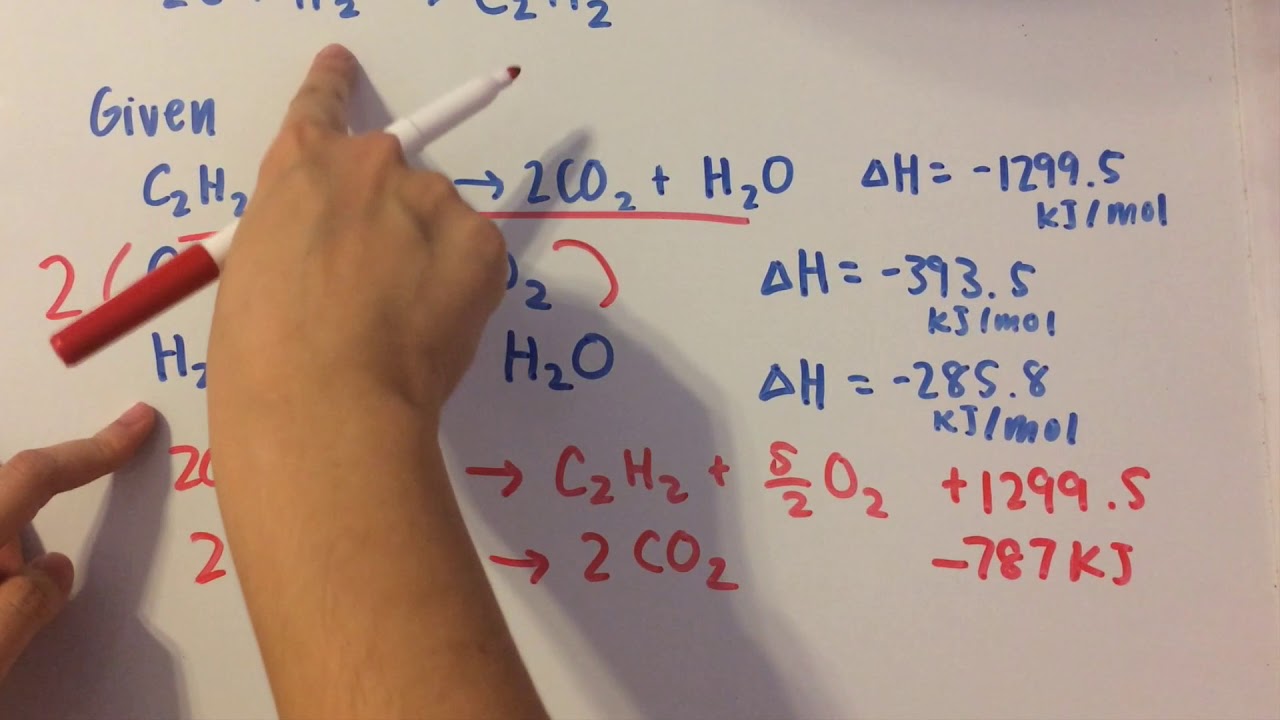 H₂ → C₂H₂
Given
C₂H₂ → 2CO₂ + H₂O ΔH = -1299.5
KJ/mol
2( O₂ ) ΔH = -393.5
KJ/mol
H₂ H₂O ΔH = -285.8
KJ/mol
2C → C₂H₂ + 5/2 O₂ +1299.5
2 → 2CO₂ -787KJ